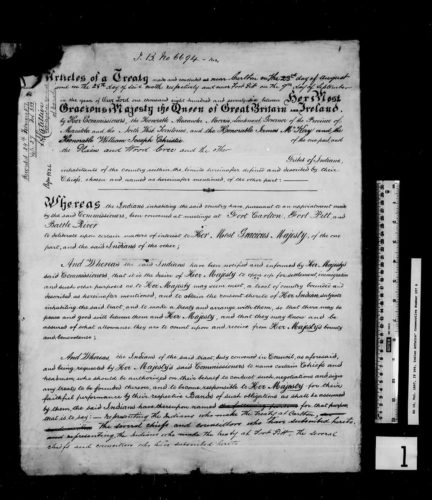 J. B. No 6694
Articles of a Treaty made and concluded at near Carlton on the 23rd day of August
and on the 28th day of said month respectively and near Fort Pitt on the 9th day of September
in the year of Our Lord one thousand eight hundred and seventy six between Her Most
Gracious Majesty the Queen of Great Britain and Ireland.
by Her Commissioners, the Honorable Alexander Morris, Lieutenant Governor of the Province of
Manitoba and the North West Territories, and the Honorable James McKay and the
Honorable William Joseph Christie of the one part, and
the Plain and Wood Cree and the other
Tribes of Indians,
inhabitants of the Country within the limits hereinafter defined and described by their
Chiefs, chosen and named as hereinafter mentioned, of the other part:
Whereas the Indians inhabiting the said country have, pursuant to an appointment made
by the said Commissioners, been convened at meetings at Fort Carlton, Fort Pitt and
Battle River
to deliberate upon certain matters of interest to Her Most Gracious Majesty, of the one
part, and the said Indians of the other;
And Whereas the said Indians have been notified and informed by Her Majesty's
said Commissioners, that it is the desire of Her Majesty to open up for settlement, immigration
and such other purposes as to Her Majesty may seem meet, a tract of country bounded and
described as hereinafter mentioned, and to obtain the consent thereto of Her Indian subjects
inhabiting the said tract, and to make a treaty and arrange with them, so that there may be
peace and good will between them and Her Majesty, and that they may know and be
assured of what allowance they are to count upon and receive from Her Majesty's bounty
and benevolence;
And Whereas the Indians of the said tract, duly convened in Council, as aforesaid,
and being requested by Her Majesty's said Commissioners to name certain Chiefs and
headmen, who should be authorized on their behalf to conduct such negotiations and sign
any treaty to be founded thereon, and to become responsible to Her Majesty for their
faithful performance by their respective Bands of such obligations as shall be assumed
by them, the said Indians have thereupon named for that purpose,
that is to say:— representing the Indians who make the treaty at Carlton,
the several chiefs and councillors who have subscribed hereto,
and representing the Indians who make the treaty at Fort Pitt, the several
chiefs and councillors who have subscribed hereto
1